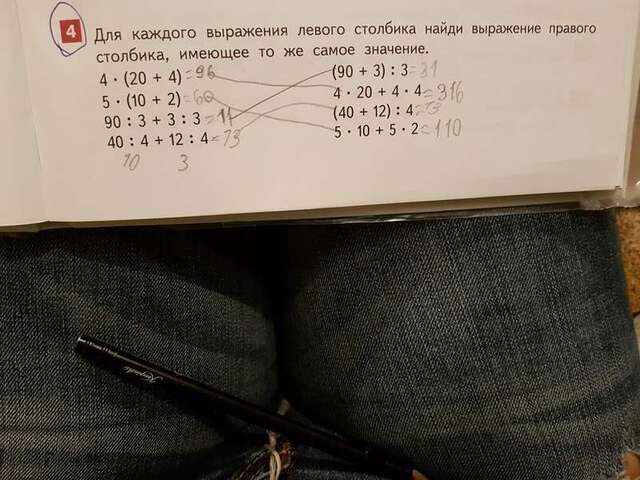 4 Для каждого выражения левого столбика найди выражение правого
столбика, имеющее то же самое значение.
4 · (20 + 4) =96 (90 + 3) : 3 =31
5 · (10 + 2) =60 4 · 20 + 4 · 4 =316
90 : 3 + 3 : 3 =11 (40 + 12) : 4 =13
40 : 4 + 12 : 4 =13 5 · 10 + 5 · 2 =110
10 3